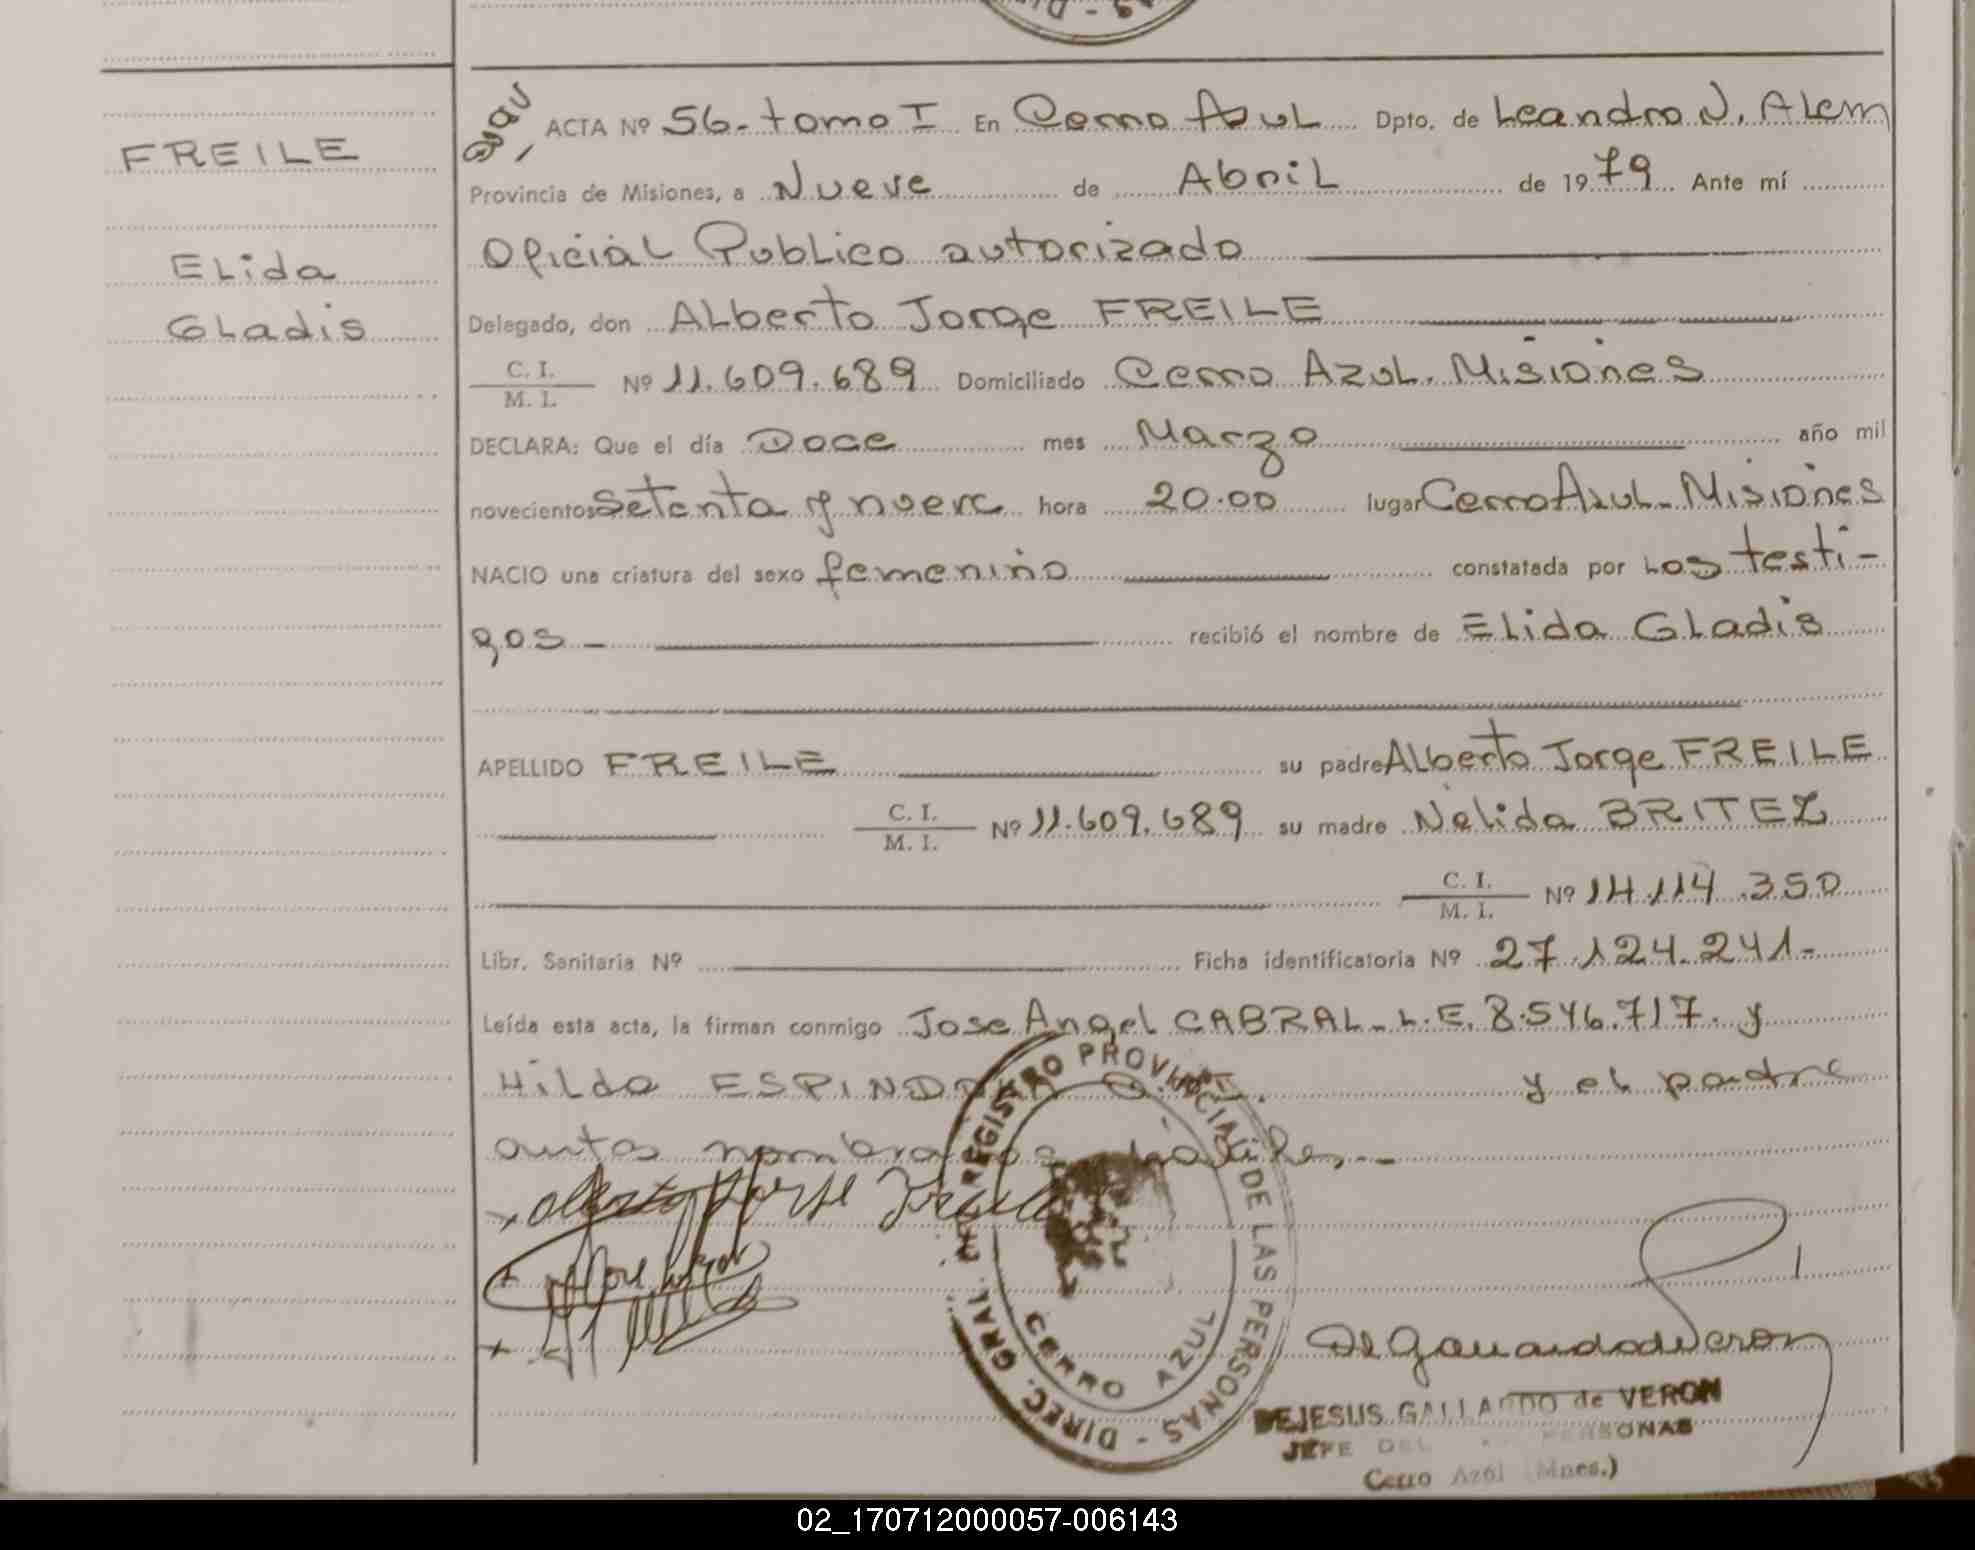 FREILE
Elida
Gladis
ACTA Nº 56-tomo I En Cerro Azul Dpto. de Leandro N. Alem
Provincia de Misiones, a Nueve de Abril de 1979 Ante mí
Oficial Publico autorizado
Delegado, don Alberto Jorge FREILE
C. I.
M. I. Nº 11.609.689 Domiciliado Cerro Azul. Misiones
DECLARA: Que el día Doce mes Marzo año mil
novecientos setenta y nueve hora 20.00 lugar Cerro Azul-Misiones
NACIO una criatura del sexo femenino constatada por Los testi-
gos - recibió el nombre de Elida Gladis
APELLIDO FREILE su padre Alberto Jorge FREILE
C. I.
M. I. Nº 11.609.689 su madre Nelida BRITEZ
C. I.
M. I. Nº 14.114.350
Libr. Sanitaria Nº Ficha identificatoria Nº 27.124.241-
Leída esta acta, la firman conmigo Jose Angel CABRAL - L.E. 8.546.717. y
Hilda ESPINDOLA y el padre
antes
Alberto Jorge Freile
DIREC. GRAL. DEL REGISTRO PROVINCIAL DE LAS PERSONAS -
CERRO AZUL
DEJESUS GALLARDO de VERON
JEFE DEL PERSONAS
Cerro Azul (Mnes.)
02_170712000057-006143